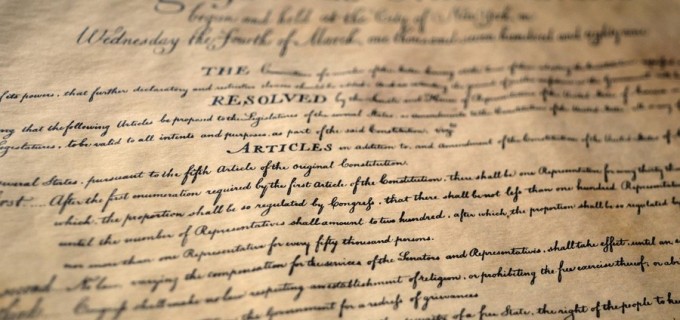 begun and held at the City of New-York, on
Wednesday the Fourth of March, one thousand seven hundred and eighty nine
THE of a number of the States having
of its powers, that further declaratory and restrictive clauses should be added
RESOLVED by the Senate and House of Representatives of the United States of
ing that the following Articles be proposed to the Legislatures of the several States, as amendments to the Constitution of the United States
Legislatures, to be valid to all intents and purposes, as part of the said Constitution. vizt
ARTICLES in addition to, and amendment of the Constitution of the United States of
several States, pursuant to the fifth Article of the original Constitution.
After the first enumeration required by the first Article of the Constitution, there shall be one Representative for every thirty
which, the proportion shall be so regulated by Congress, that there shall be not less than one hundred Representatives
until the number of Representatives shall amount to two hundred, after which, the proportion shall be so regulated by
nor more than one Representative for every fifty thousand persons.
No law, varying the compensation for the services of the Senators and Representatives, shall take effect, until an
Congress shall make no law respecting an establishment of religion, or prohibiting the free exercise thereof; or
the Government for a redress of grievances
of a free State, the right of the people to